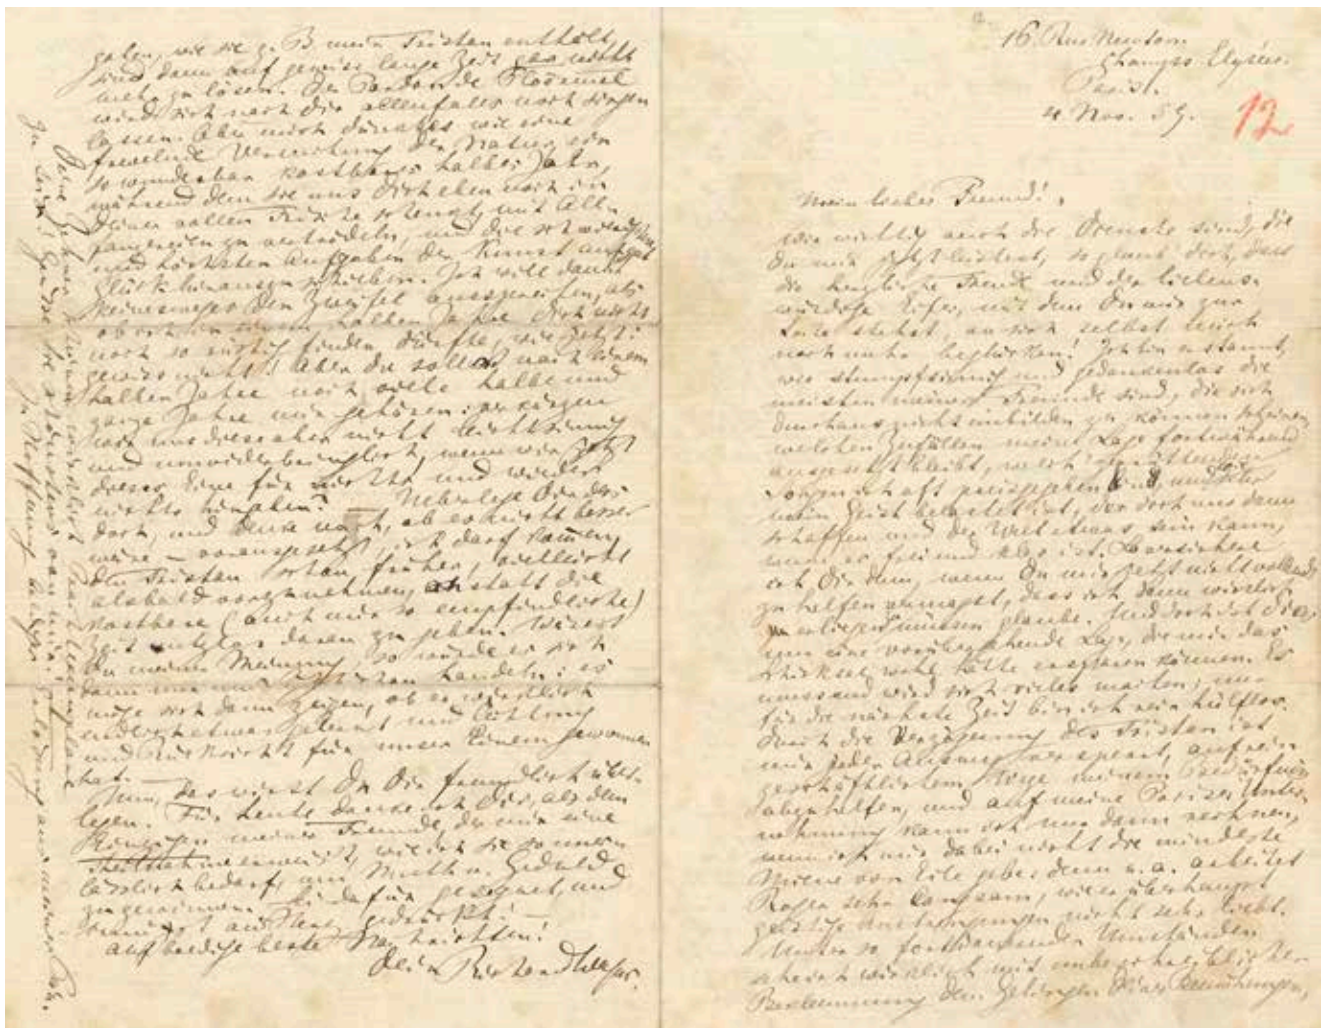 16. Rue Newton.
Champs Elysées.
Paris.
4 Nov. 59.
12
Mein lieber Freund!
wie wichtig auch die Dienste sind, die
Du mir jetzt leistest, so glaub' doch, dass
die herzliche Freude und der liebens-
würdige Eifer, mit dem Du mir zur
Seite stehst, an sich selbst mich
noch mehr beglücken! Ich bin erstaunt,
wie stumpfsinnig und gedankenlos die
meisten meiner Freunde sind, die sich
durchaus nicht einbilden zu können scheinen
welchen Zufällen meine Lage fortwährend
ausgesetzt bleibt, welch
Sorgen ich oft preisgegeben bin und
mein Geist belastet ist, der doch nur dann
schaffen und der Welt etwas sein kann,
wenn er frei und klar ist.
ich Dir denn, wenn Du mir jetzt nicht
zu helfen vermagst, dass ich dann wirklich
erliegen müssen glaube. Und doch ist dies
nur eine vorübergehende Lage, die mir das
Schicksal wohl hätte ersparen können. Es
wird sich vieles machen; nur
für die nächste Zeit bin ich rein hülflos.
Durch die Verzögerung des Tristan ist
mir jeder Ausweg versperrt, auf rein
geschäftlichem Wege meinem Bedürfniss
abzuhelfen, und auf meine Pariser Unter-
nehmung kann ich nur dann rechnen,
wenn ich mir dabei nicht die mindeste
Miene von Eile gebe; denn u. a. arbeitet
Roger sehr langsam, wie er überhaupt
geistige Anstrengungen nicht sehr liebt.
Unter so fortdauernden Umständen
scheint wirklich mit unbeschreiblicher
Beklemmung dem Gelingen Deiner Bemühungen,
gaben, wie sie z. B. mein Tristan enthält,
sind dann auf gewisse lange Zeit gar nicht
mehr zu lösen. Der Pardon de Ploërmel
wird sich nach Dir allenfalls noch singen
lassen. Aber mich dünkt es wie eine
frevelnde Versuchung der Natur, ein
so wunderbar kostbares halbes Jahr,
während dem sie uns Dich eben noch in
Deiner vollen Frische schenkt, mit All-
fanzereien zu vertrödeln, und die schwierigsten
und höchsten Aufgaben der Kunst auf gut
Glück hinauszuschieben. Ich will damit
keineswegs den Zweifel aussprechen, als
ob ich in einem halben Jahre Dich nicht
noch so rüstig finden dürfte, wie jetzt:
gewiss nicht! Aber Du sollst nach einem
halben Jahre noch viele halbe und
ganze Jahre mir gehören: verkürzen
wir uns diese aber nicht leichtsinnig
und unwiederbringlich, wenn wir jetzt
dieses Eine für nichts und wieder
nichts hingeben? — Ueberlege Dir das
doch, und denke nach, ob es nicht besser
wäre — vorausgesetzt, ich darf kommen,
den Tristan schon früher, vielleicht
alsbald vorzunehmen, anstatt die
kostbare (auch mir so empfindliche)
Zeit nutzlos daran zu geben. Wärest
Du meiner Meinung, so würde es sich
dann nur um handeln: es
möge sich dann zeigen, ob er wirklich
endlich etwas gelernt und Achtung
und Rücksicht für unser Einen gewonnen
hat. —
Nun, das wirst Du Dir freundlich über-
legen. Für heute danke ich Dir, als dem
Einzigen meiner Freunde, der mir eine
Theilnahme erweist, wie ich sie so uner-
lässlich bedarf, um Muth u. Geduld
zu gewinnen. Sei dafür gesegnet, und
an's Herz gedrückt! —
Auf baldige beste Nachrichten!
Dein Richard Wagner.